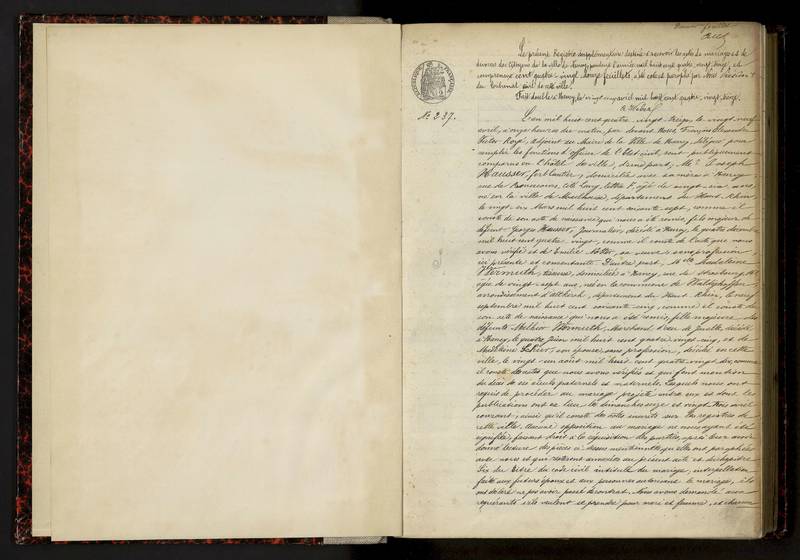 Le présent Registre supplémentaire destiné à recevoir les actes de mariages et de
divorces des citoyens de la ville de Nancy, pendant l'année mil huit cent quatre-vingt-treize, et
comprenant cent quatre-vingt-douze feuillets, a été coté et paraphé par Nous Président
du Tribunal civil de cette ville.
Fait double à Nancy, le vingt cinq avril mil huit cent quatre-vingt-treize.
No 237.
L'an mil huit cent quatre-vingt-treize, le vingt neuf
avril, à onze heures du matin, par devant Nous, François Alexandre
Victor adjoint au Maire de la Ville de Nancy, délégué pour
remplir les fonctions d'officier de l'Etat civil, sont publiquement
comparus en l'hôtel de ville, d'une part, Mr Joseph
Hausser, ferblantier, domicilié avec sa mère à Nancy
rue de cité lettre F, âgé de vingt-six ans,
né en la ville de Mulhouse, département du Haut-Rhin,
le vingt-six Mars mil huit cent soixante-sept, comme il
conste de son acte de naissance qui nous a été remis, fils majeur de
défunt Georges Hausser, journalier, décédé à Nancy, le quatre
mil huit cent quatre-vingt, comme il conste de l'acte que nous
avons vérifié et de Emilie sa veuve, sans profession,
ici présente et consentante. D'autre part, Mlle Madeleine
Wermuth, domiciliée à Nancy, rue de Strasbourg,
âgée de vingt-sept ans, née en la commune de
arrondissement d'Altkirch, département du Haut-Rhin, le neuf
septembre mil huit cent soixante-cinq, comme il conste de
son acte de naissance qui nous a été remis, fille majeure des
défunts Melchior Wermuth, Marchand d'eau de Javelle, décédé
à Nancy, le quatre Juin mil huit cent quatre-vingt-cinq, et de
Madeleine son épouse, sans profession, décédée en cette
ville, le vingt-un août mil huit cent quatre-vingt-dix, comme
il conste des actes que nous avons vérifiés et qui font mention
du décès de ses aïeuls paternels et maternels. Lesquels nous ont
requis de procéder au mariage projeté entre eux et dont les
publications ont eu lieu les dimanches seize et vingt trois avril
courant, ainsi qu'il conste des actes inscrits sur les registres de
cette ville. Aucune opposition au mariage ne nous ayant été
signifiée, faisant droit à la réquisition des parties, après leur avoir
donné lecture des pièces ci-dessus mentionnées qu'elles ont paraphées
avec nous et qui resteront annexées au présent acte et du chapitre
Six du titre du code civil intitulé du mariage, interpellation
faite aux futurs époux et aux personnes autorisant le mariage, ils
ont déclaré ne pas avoir passé de contrat. Nous avons demandé aux
requérants s'ils veulent se prendre pour mari et femme, et chacun